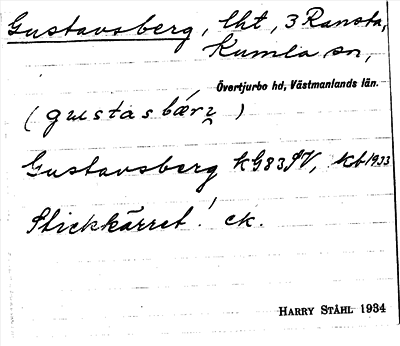 Gustavsberg, lht, 3 Ransta,
Kumla sn,
Övertjurbo hd, Västmanlands län.
(gustasbærɥ)
Gustavsberg kG83SV, kb1933
Stickkärret! ek.
HARRY STÅHL 1934